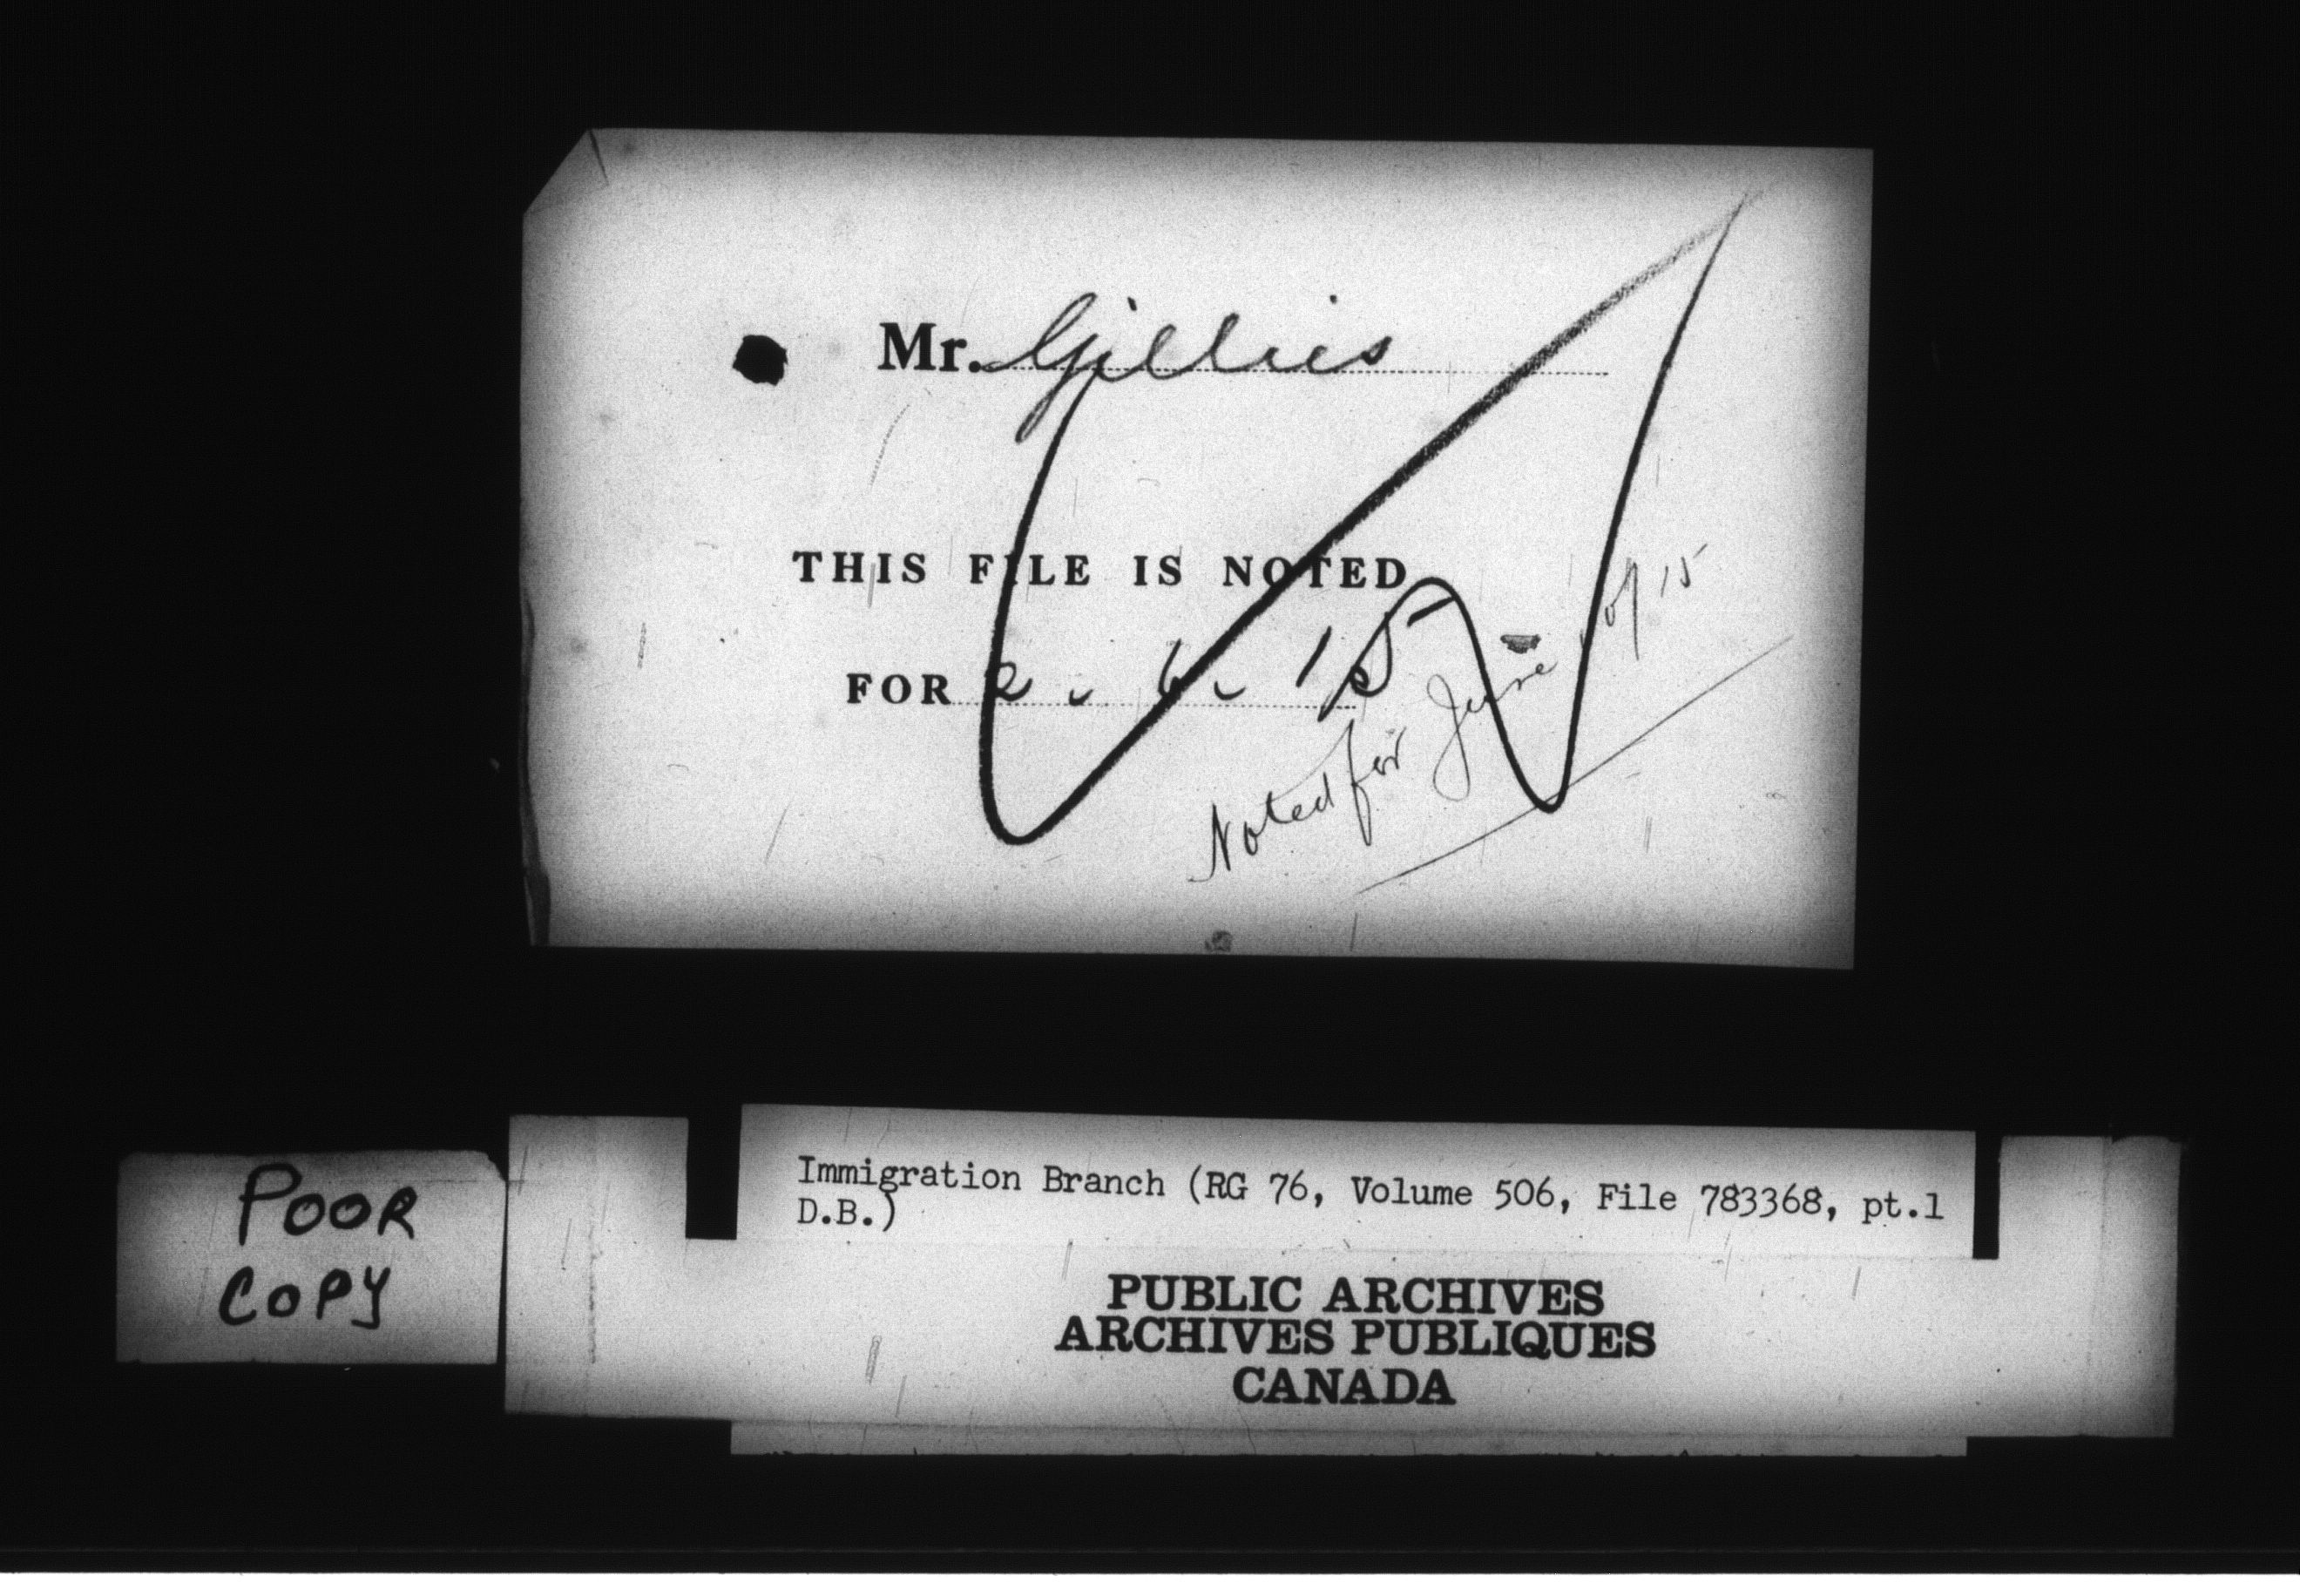 Mr. Gillies
THIS FILE IS NOTED
FOR 2. 6. 15
Noted for June of 15
POOR
COPY
Immigration Branch (RG 76, Volume 506, File 783368, pt.1
D.B.)
PUBLIC ARCHIVES
ARCHIVES PUBLIQUES
CANADA